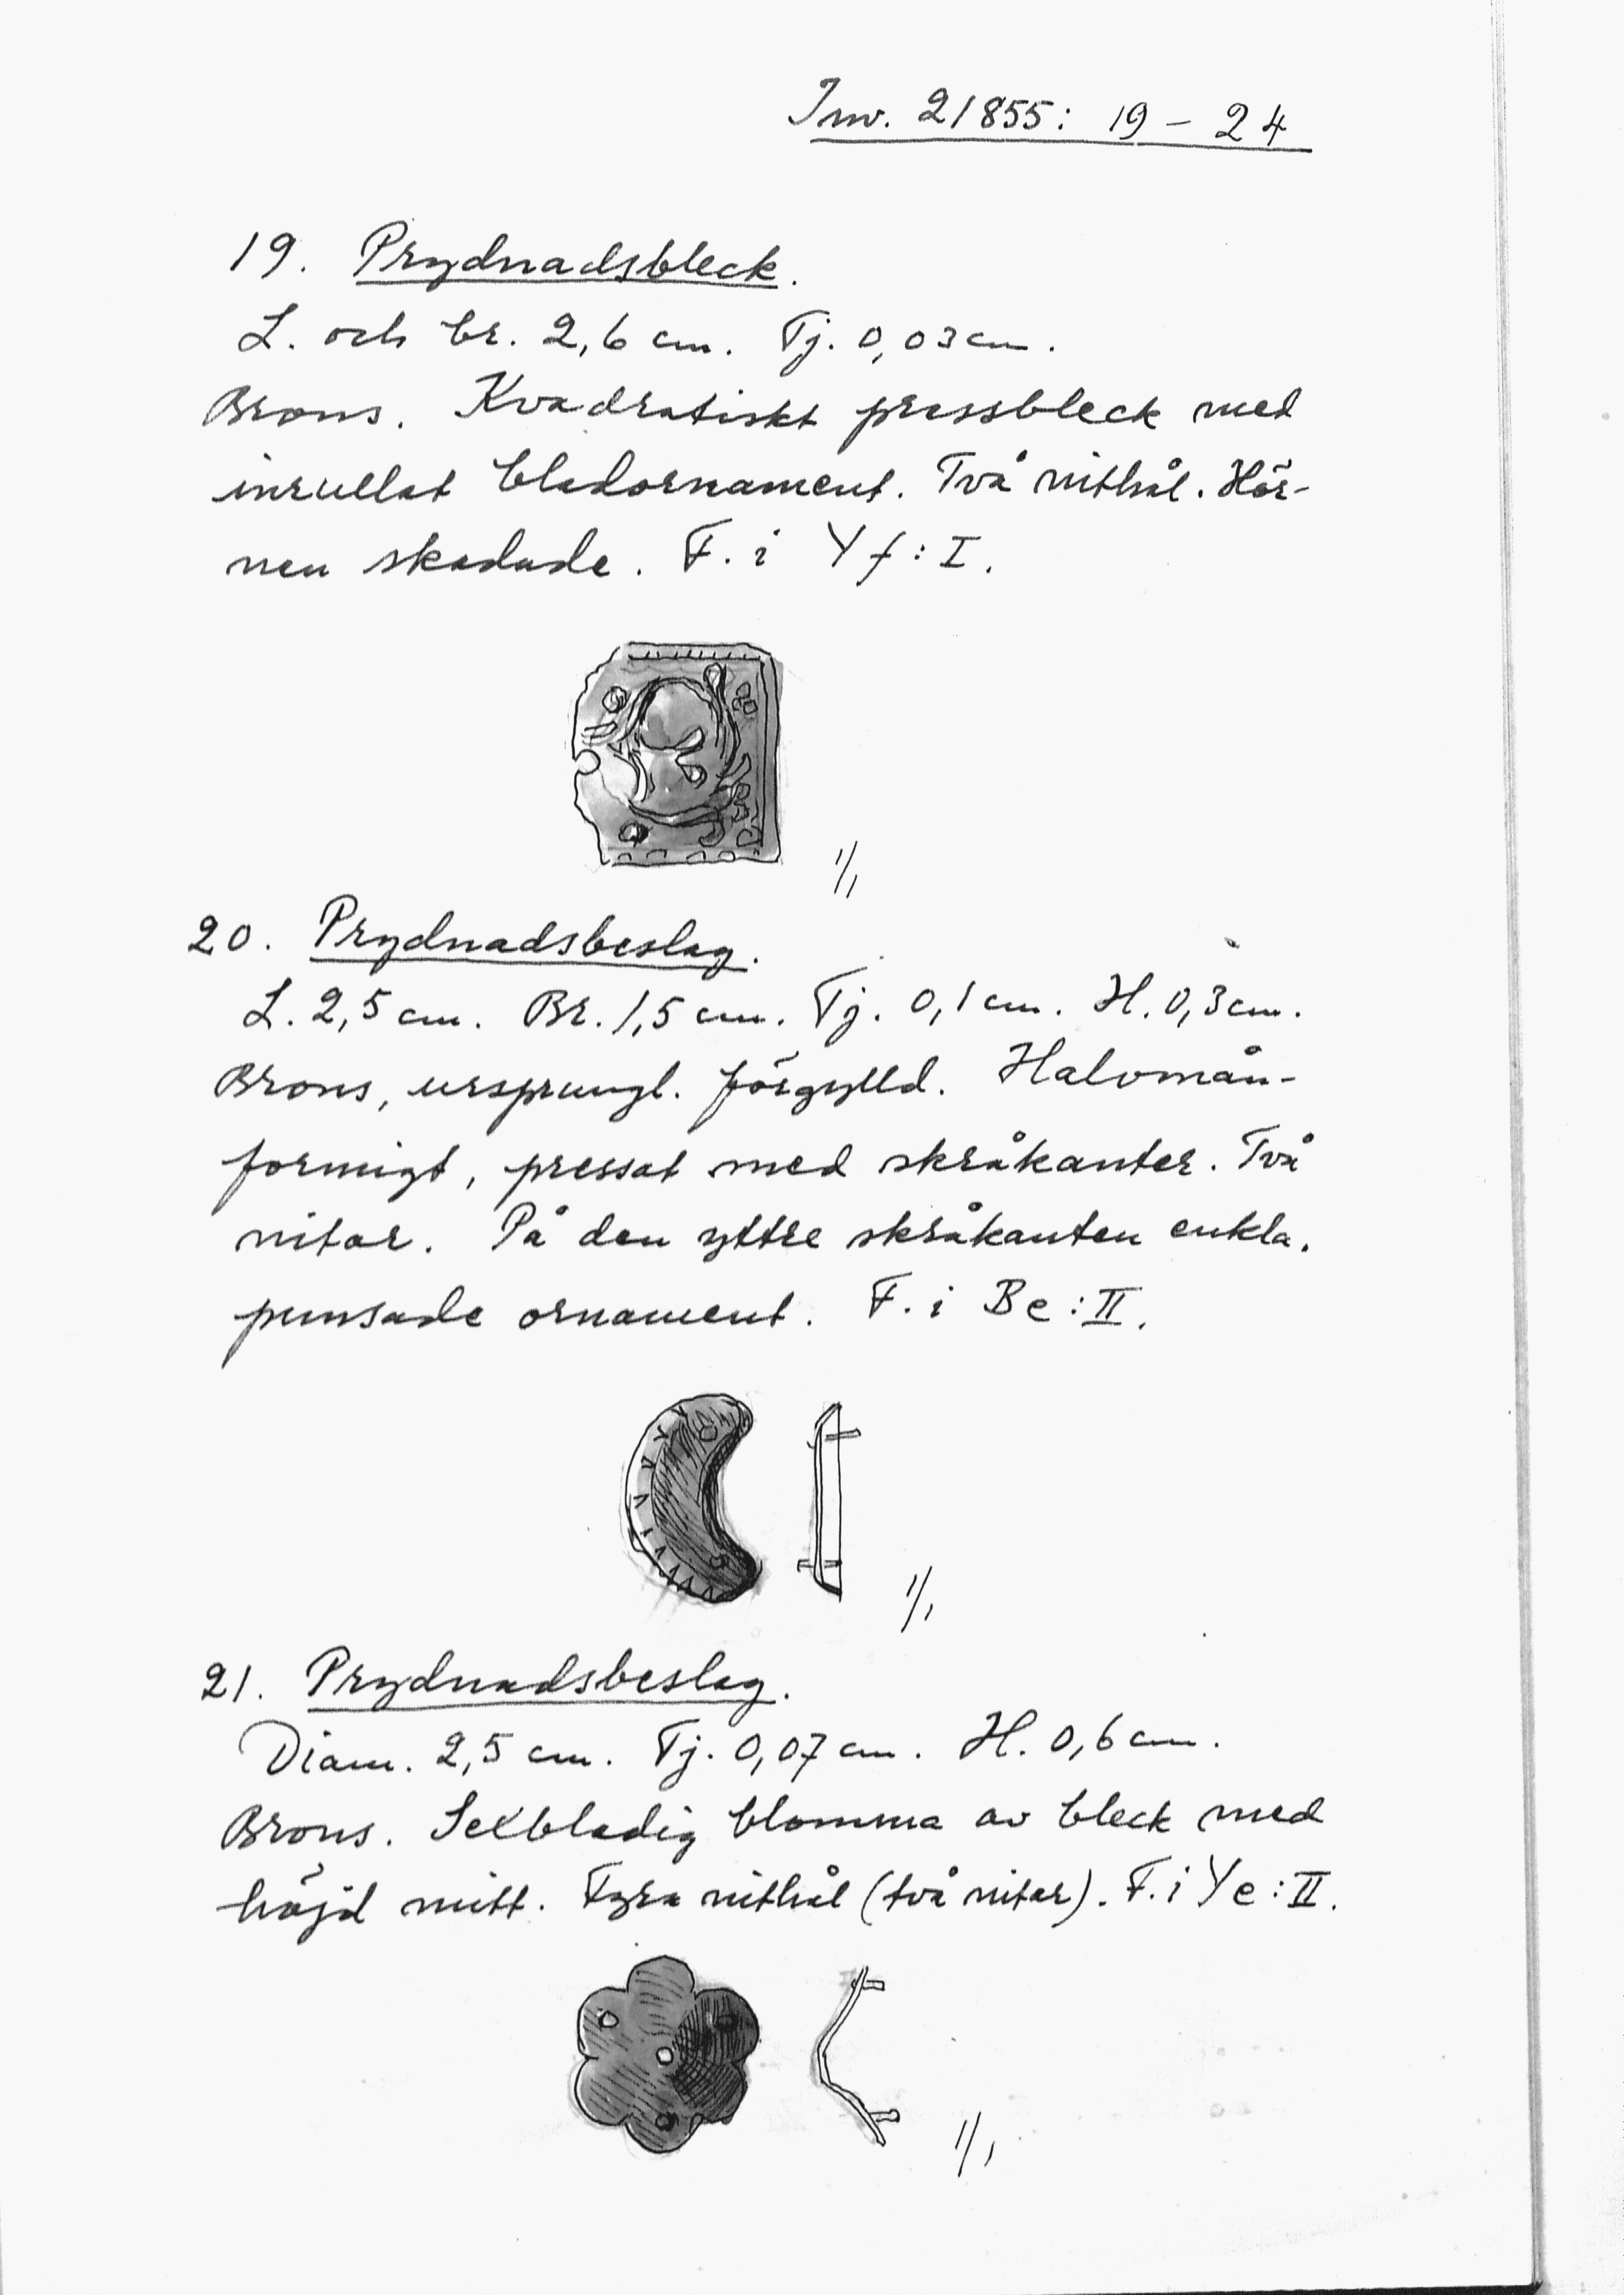 Inv. 21855: 19 – 24
19. Prydnadsbleck.
L. och br. 2,6 cm. Tj. 0,03 cm.
Brons. Kvadratiskt pressbleck med
inrullat bladornament. Två nithål. Hör-
nen skadade. F. i Yf: I.
1/1
20. Prydnadsbeslag.
L. 2,5 cm. Br. 1,5 cm. Tj. 0,1 cm. H. 0,3 cm.
Brons, ursprungl. förgylld. Halvmån-
formigt, pressat med skråkanter. Två
nitar. På den yttre skråkanten enkla.
punsade ornament. F. i Be: II.
1/1
21. Prydnadsbeslag.
Diam. 2,5 cm. Tj. 0,07 cm. H. 0,6 cm.
Brons. Sexbladig blomma av bleck med
höjd mitt. Fyra nithål (två nitar). F. i Ye: II.
1/1